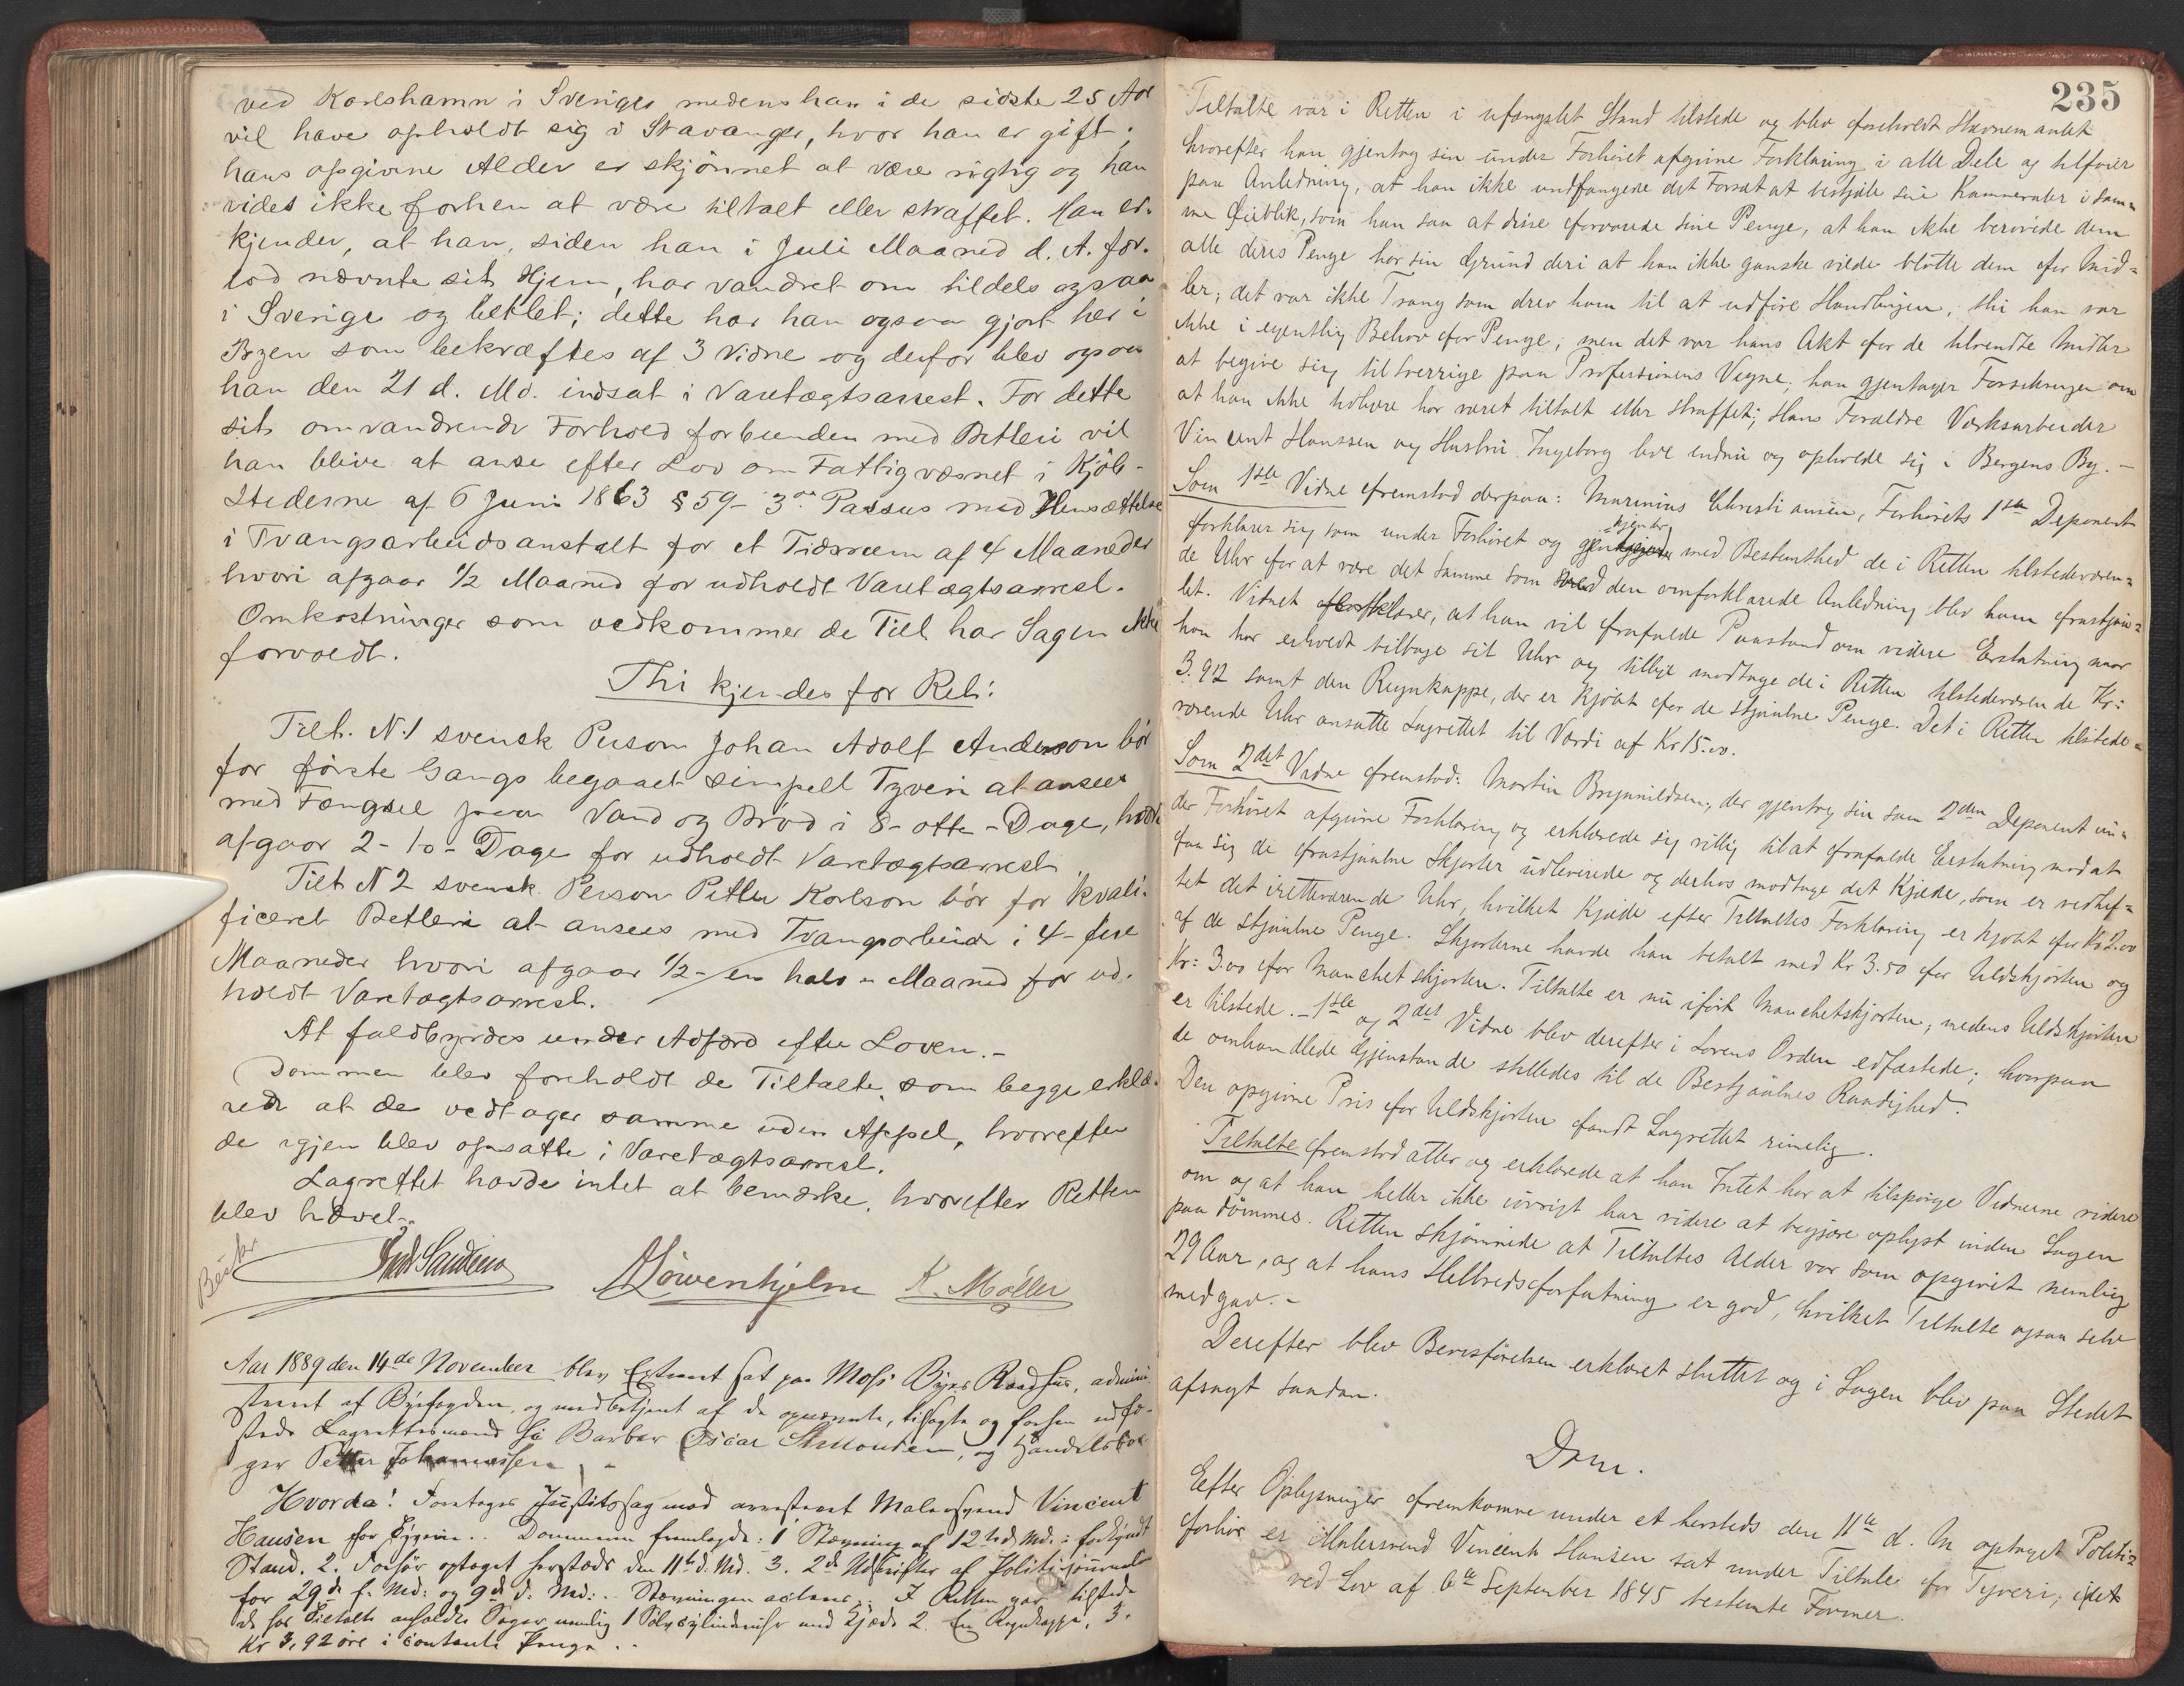 ved Karlshamn i Sveriges medens han i de sidste 25 Aar
vil have opholdt sig i Stavanger, hvor han er gift;
hans opgivne Alder er skjønnet at være rigtig og han
vides ikke forhen at være tiltalt eller straffet. Han er-
kjender, at han, siden han i Juli Maaned d. A. for-
lod nævnte sit Hjem, har vandret om tildels ogsaa
i Sverige og betlet; dette har han ogsaa gjort her i
Byen som bekræftes af 3 Vidne og derfor blev ogsaa
han den 21 d. Md. indsat i Varetægtsarrest. For dette
sit omvandrende Forhold forbunden med Betleri vil
han blive at anse efter Lov om Fattigvæsnet i Kjøb-
stederne af 6 Juni 1863 § 59 - 3die Passus med Hensættelse
i Tvangsarbeidsanstalt for et Tidsrum af 4 Maaneder
hvori afgaar 1/2 Maaned for udholdt Varetægtsarrest.
Omkostninger som vedkommer de Tilt. har Sagen ikke
forvoldt.
Thi kjendes for Ret:
Tilt. N.1 svensk Person Johan Adolf Anderson bør
for første Gangs begaaet simpelt Tyveri at ansees
med Fængsel paa Vand og Brød i 8 - otte - Dage, hvori
afgaar 2 - to - Dage for udholdt Varetægtsarrest
Tilt N 2 svensk Person Petter Karlson bør for kvali-
ficeret Betleri at ansees med Tvangsarbeide i 4 - fire
Maaneder hvori afgaar 1/2 - en halv - Maaned for ud-
holdt Varetægtsarrest.
At fuldbyrdes under Adfærd efter Loven. -
Dommen blev foreholdt de Tiltalte, som begge erklæ-
rede at de vedtager samme uden Appel, hvorefter
de igjen blev opsatte i Varetægtsarrest.
Lagrettet havde intet at bemærke, hvorefter Retten
blev hævet.
Löwenhjelm K. Møller
Aar 1889 den 14de November blev Extraret sat paa Moss Byes Raadhus, admini-
streret af Byfogden, og medbetjent af de opnævnte, tilsagte og forhen edfæ-
stede Lagrettesmænd H: Barber Oscar Simonsen, og Handelsbor-
ger Petter Johannessen
Hvorda! Foretoges Justitssag mod arresteret Malersvend Vincent
Hansen for Tyveri. Dommeren fremlagde: 1 Stævning af 12te d. Md. i forkyndt
Stand. 2. Forhør optaget hersteds den 11te d. Md. 3. 2de Udskrifter af Politijournalen
for 29de f. Md: og 9de d. Md: Stævningen I Retten var tilstede
de hos Tiltalte anholdte Sager nemlig 1 Sølvcylinderuhr med Kjæde 2. En Regnkappe, 3.
Kr 3,92 øre i contante Penge.
235
Tiltalte var i Retten i ufængslet Stand tilstede og blev foreholdt Stævnemaalet
hvorefter han gjentog sin under Forhøret afgivne Forklaring i alle Dele og tilføier
paa Anledning, at han ikke undfangede det Forsæt at bestjæle sine Kammerater i sam-
me Øieblik, som han saa at disse forvarede sine Penge, at han ikke berøvede dem
alle deres Penge har sin Grund deri at han ikke ganske vilde blotte dem for Mid-
ler; det var ikke Trang som drev ham til at udføre Handlingen, thi han var
ikke i egentlig Behov for Penge; men det var hans Akt for de tilvendte Midler
at begive sig til Sverrige paa Professionens Vegne; han gjentager Forsikringen om
at han ikke tidligere har været tiltalt eller straffet; Hans Forældre Værksarbeider
Vincent Hanssen og Hustru Ingeborg leve endnu og opholde sig i Bergens By. -
Som 1ste Vidne fremstod derpaa: Marinius Christiansen, Forhørets 1ste Deponent
forklarer sig som under Forhøret og gjenkjender med Bestemthed de i Retten tilstedeværen-
de Uhr for at være det samme som ved den omforklarede Anledning blev ham frastjaa-
let. Vidnet forklarer, at han vil frafalde Paastand om videre Erstatning naar
han har erholdt tilbage sit Uhr og tillige modtage de i Retten tilstedeværende Kr:
3.92 samt den Regnkappe, der er kjøbt for de stjaalne Penge. Det i Retten tilstede-
værende Uhr ansatte Lagrettet til Værdi af Kr 15.00.
Som 2det Vidne fremstod: Martin Brynnildsen, der gjentog sin som 2den Deponent un-
der Forhøret afgivne Forklaring og erklærede sig villig til at frafalde Erstatning mod at
faa sig de frastjaalne Skjorter udleverede og derhos modtage det Kjæde, som er vedhef-
tet det iretteværende Uhr, hvilket Kjæde efter Tiltaltes Forklaring er kjøbt for Kr 2.00
af de stjaalne Penge. Skjorterne havde han betalt med Kr 3.50 for Uldskjorten og
Kr: 3.00 for Manchetskjorten. Tiltalte er nu iført Manchetskjorten, medens Uldskjorten
er tilstede. - 1ste og 2det Vidne blev derefter i Lovens Orden edfæstede; hvorpaa
de omhandlede Gjenstande stilledes til de Bestjaalnes Raadighed.
Den opgivne Pris for Uldskjorten fandt Lagrettet rimelig.
Tiltalte fremstod atter og erklærede at han Intet har at tilspørge Vidnerne videre
om og at han heller ikke iøvrigt har videre at begjære oplyst inden Sagen
paadømmes. Retten skjønnede at Tiltaltes Alder var som opgivet nemlig
29 Aar, og at hans Helbredsforfatning er god, hvilket Tiltalte ogsaa selv
medgav. -
Derefter blev Bevisførelsen erklæret sluttet og i Sagen blev paa Stedet
afsagt saadan.
Dom.
Efter Oplysninger fremkomne under et hersteds den 11te d. M optaget Politi-
forhør er Malersvend Vincent Hansen sat under Tiltale for Tyveri, idet
ved Lov af 6te September 1845 bestemte Former.